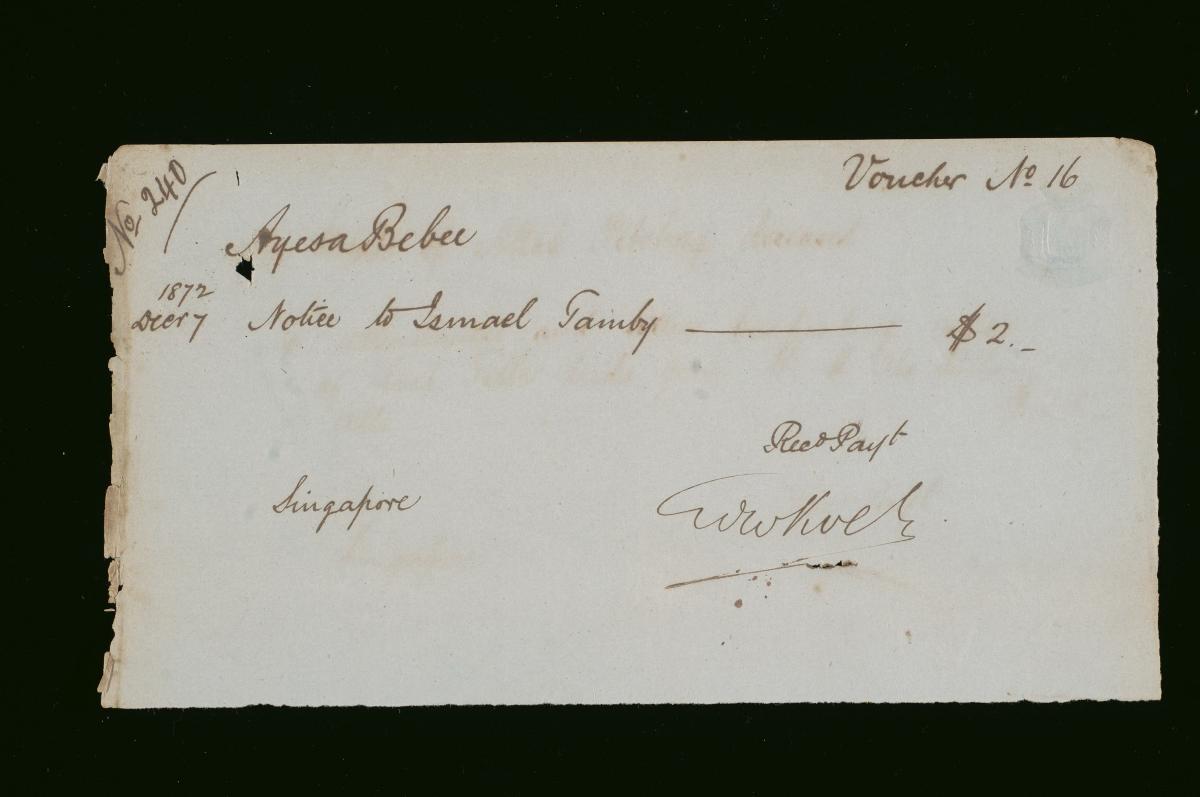 No 240
Voucher No 16
Ayesa Bebee
1872
Decr 7 Notice to Ismael Tamby $ 2._
Recd Payt
Singapore